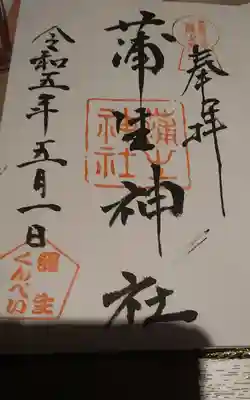 奉拝
蒲生神社
蒲生神社
令和五年五月一日
蒲生
くんぺい